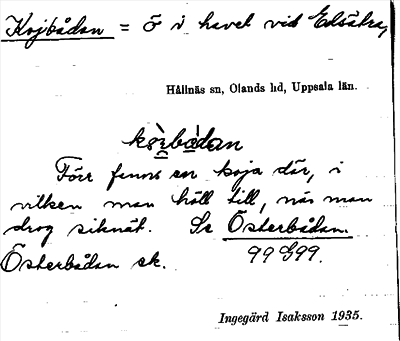 Kojbådan = ö i havet vid Edsätra,
Hållnäs sn, Olands hd, Uppsala län.
Förr fanns en koja där, i
vilken man höll till, när man
drog siknät. Se Österbådan.
Österbådan ek. 99 G99.
Ingegärd Isaksson 1935.